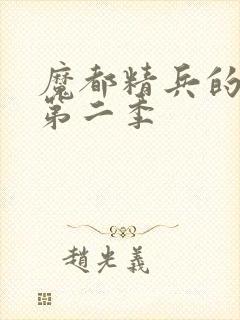 魔都精兵的
第二季
趙光義